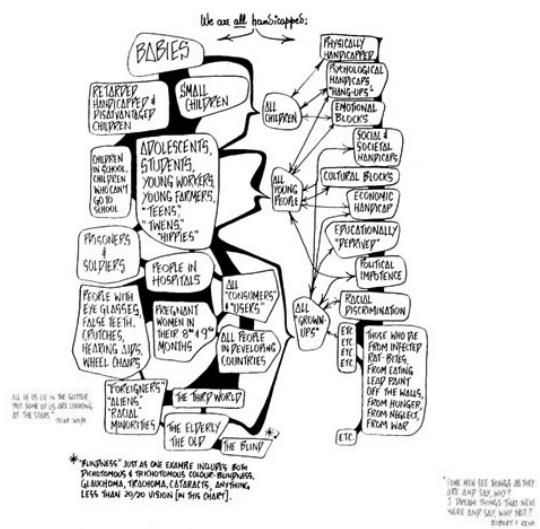 We are all handicapped:
BABIES
RETARDED
HANDICAPPED &
DISADVANTAGED
CHILDREN
SMALL
CHILDREN
CHILDREN
IN SCHOOL,
CHILDREN
WHO CAN'T
GO TO
SCHOOL
ADOLESCENTS,
STUDENTS,
YOUNG WORKERS,
YOUNG FARMERS,
"TEENS,"
"TWENS,"
"HIPPIES"
PRISONERS
&
SOLDIERS
PEOPLE IN
HOSPITALS
PEOPLE WITH
EYE GLASSES,
FALSE TEETH,
CRUTCHES,
HEARING AIDS,
WHEEL CHAIRS
PREGNANT
WOMEN IN
THEIR 8TH & 9TH
MONTHS
ALL
"CONSUMERS"
& "USERS"
ALL PEOPLE
IN DEVELOPING
COUNTRIES
"FOREIGNERS"
"ALIENS,"
RACIAL
MINORITIES
THE THIRD WORLD
THE ELDERLY
THE OLD
THE BLIND *
ALL
CHILDREN
ALL
YOUNG
PEOPLE
ALL
"GROWN-
UPS"
PHYSICALLY
HANDICAPPED
PSYCHOLOGICAL
HANDICAPS,
"HANG-UPS"
EMOTIONAL
BLOCKS
SOCIAL &
SOCIETAL
HANDICAPS
CULTURAL BLOCKS
ECONOMIC
HANDICAP
EDUCATIONALLY
"DEPRIVED"
POLITICAL
IMPOTENCE
RACIAL
DISCRIMINATION
ETC
ETC
ETC
ETC
ETC.
THOSE WHO DIE
FROM INFECTED
RAT-BITES,
FROM EATING
LEAD PAINT
OFF THE WALLS,
FROM HUNGER,
FROM NEGLECT,
FROM WAR
* "BLINDNESS" JUST AS ONE EXAMPLE INCLUDES BOTH
DICHOTOMOUS & TRICHOTOMOUS COLOUR-BLINDNESS,
GLAUCHOMA, TRACHOMA, CATARACTS, ANYTHING
LESS THAN 20/20 VISION [IN THIS CHART].
ALL OF US LIE IN THE GUTTER,
BUT SOME OF US ARE LOOKING
AT THE STARS"
"SOME MEN SEE THINGS AS THEY
ARE AND SAY, WHY?
I DREAM THINGS THAT NEVER
WERE AND SAY, WHY NOT?"
ROBERT F. KENN